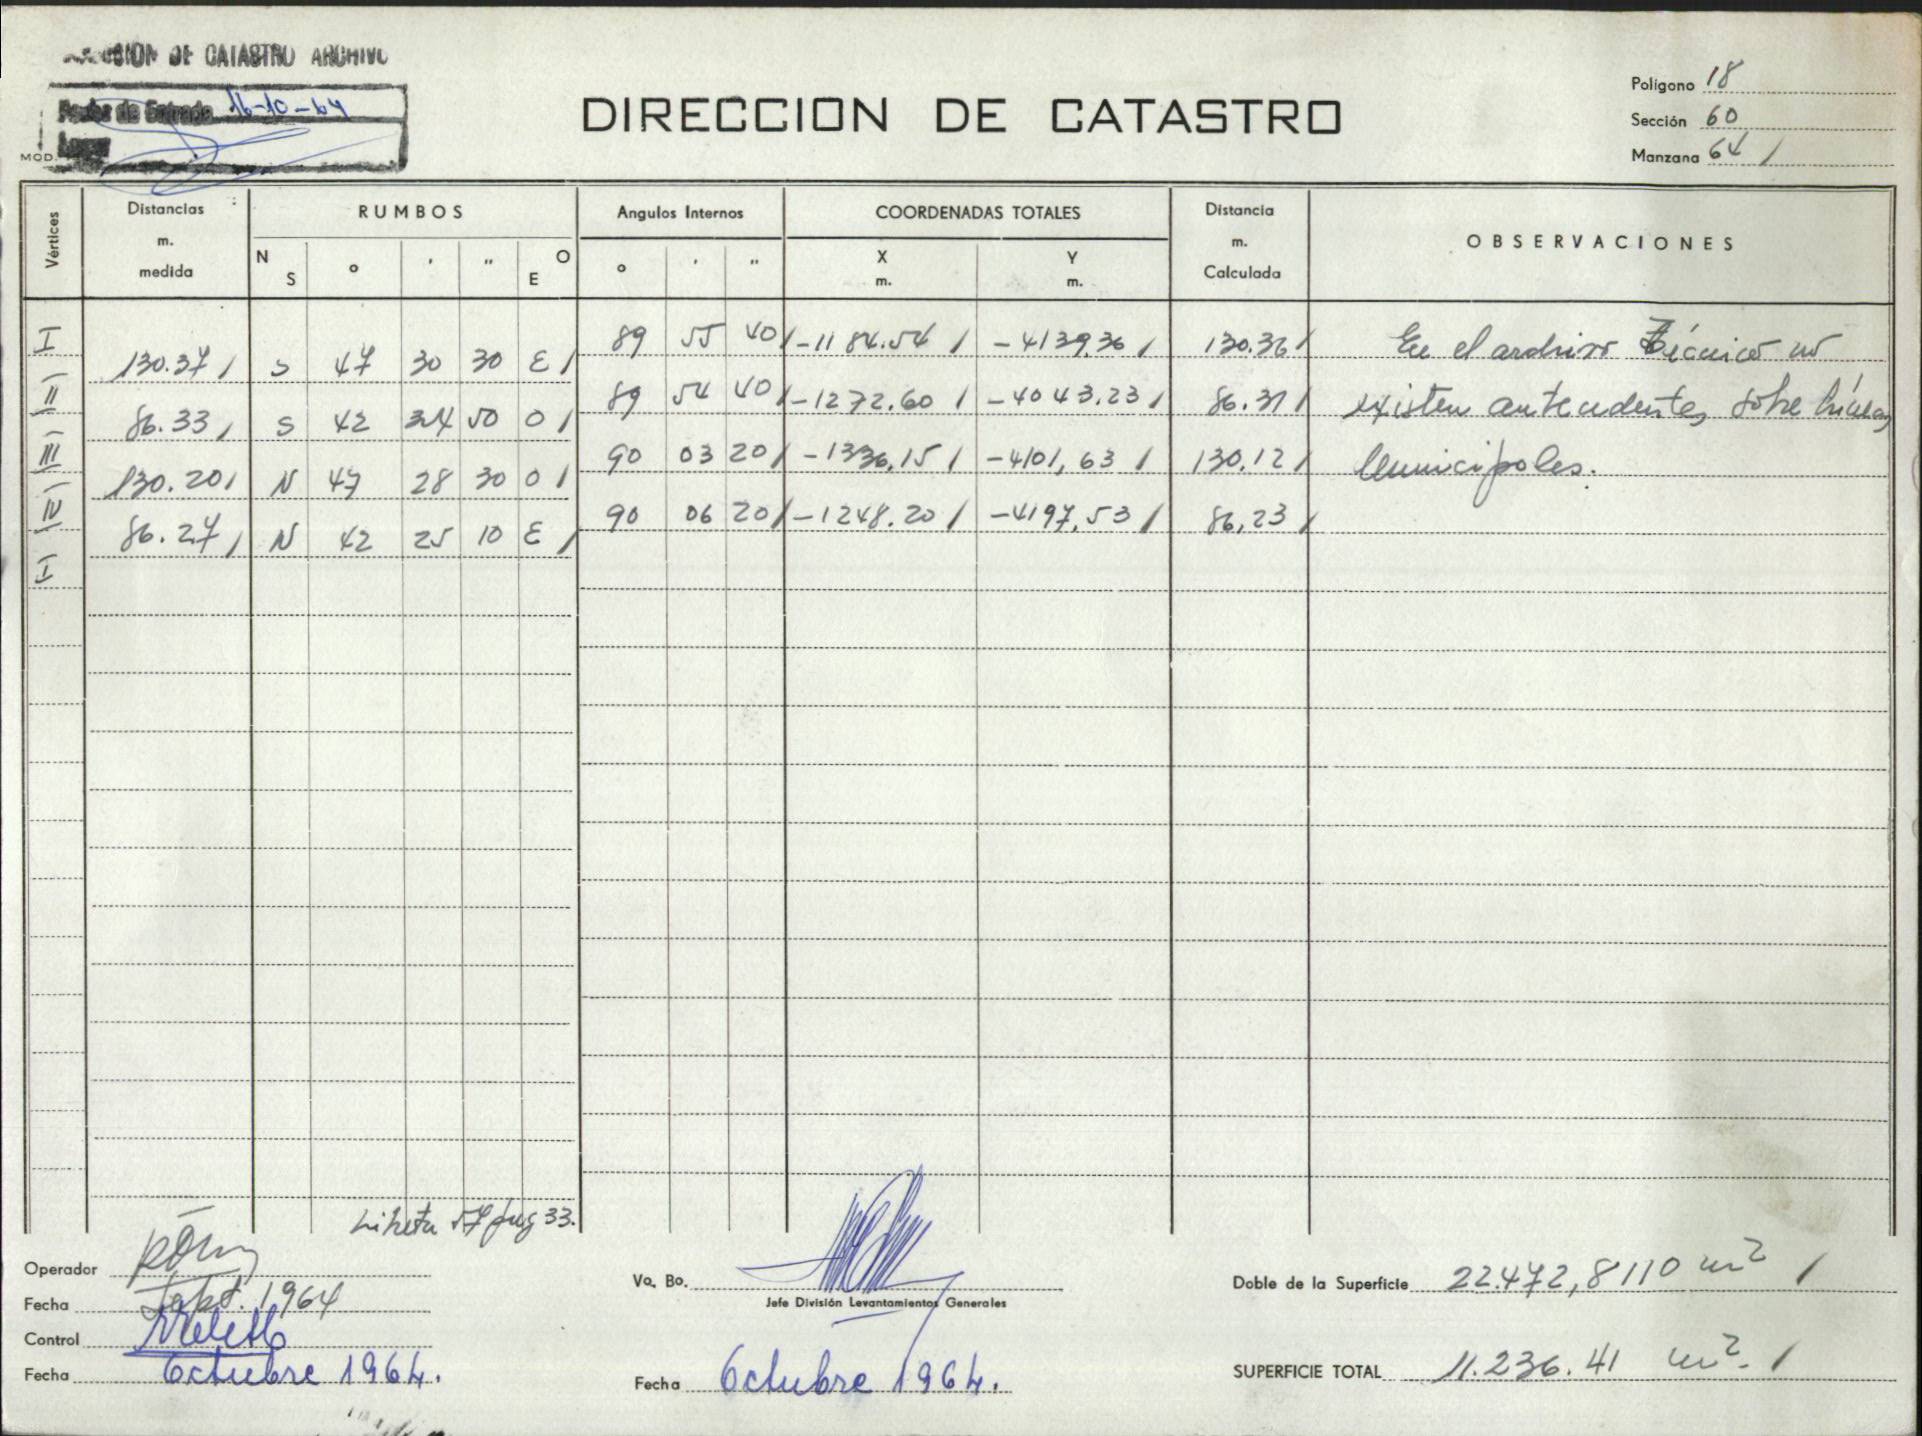 DE CATASTRO ARCHIVO
Fecha de Entrada 16-10-64
MOD.
DIRECCION DE CATASTRO
Polígono 18
Sección 60
Manzana 64 /
Vértices
Distancias m. medida
RUMBOS
N S ° ' " O E
Angulos Internos
° ' "
COORDENADAS TOTALES
X m. Y m.
Distancia m. Calculada
OBSERVACIONES
I 89 55 40 / -1184.54 / -4139.36 / 130.36 / En el archivo Técnico no
130.37 / S 47 30 30 E /
II 89 54 40 / -1272.60 / -4043.23 / 86.31 / existen antecedentes sobre líneas
86.33 / S 42 34 50 O /
III 90 03 20 / -1336,15 / -4101,63 / 130,12 / Municipales.
130.20 / N 47 28 30 O /
IV 90 06 20 / -1248.20 / -4197,53 / 86,23 /
86.27 / N 42 25 10 E /
I
Libreta 57 pag 33.
Operador
Fecha Sept. 1964
Control
Fecha Octubre 1964.
Vo. Bo.
Jefe División Levantamientos Generales
Fecha Octubre 1964.
Doble de la Superficie 22.472,8110 m² /
SUPERFICIE TOTAL 11.236.41 m². /